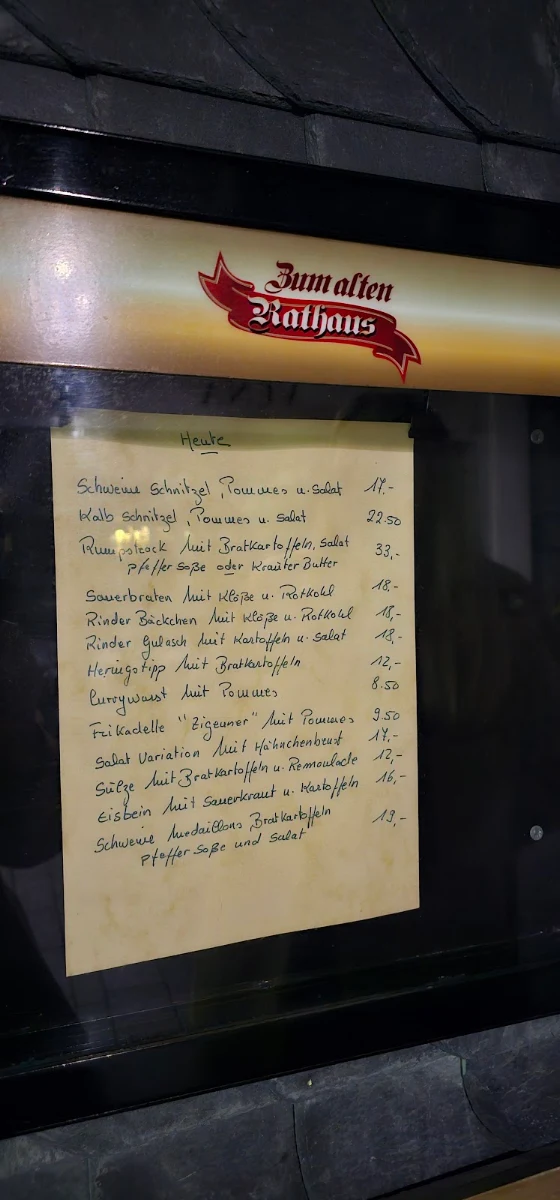 Zum alten
Rathaus
Heute
Schweine Schnitzel, Pommes u. Salat 17.-
Kalb Schnitzel, Pommes u. Salat 22.50
Rumpsteack mit Bratkartoffeln, Salat 33,-
Pfeffer Soße oder Kräuter Butter
Sauerbraten mit Klöße u. Rotkohl 18,-
Rinder Bäckchen mit Klöße u. Rotkohl 18,-
Rinder Gulasch mit Kartoffeln u. Salat 18,-
Heringstipp mit Bratkartoffeln 12,-
Currywurst mit Pommes 8.50
Frikadelle "Zigeuner" mit Pommes 9.50
Salat Variation mit Hähnchenbrust 17,-
Sülze mit Bratkartoffeln u. Remoulade 12,-
Eisbein mit Sauerkraut u. Kartoffeln 16,-
Schweine Medaillons Bratkartoffeln 19,-
Pfeffer Soße und Salat